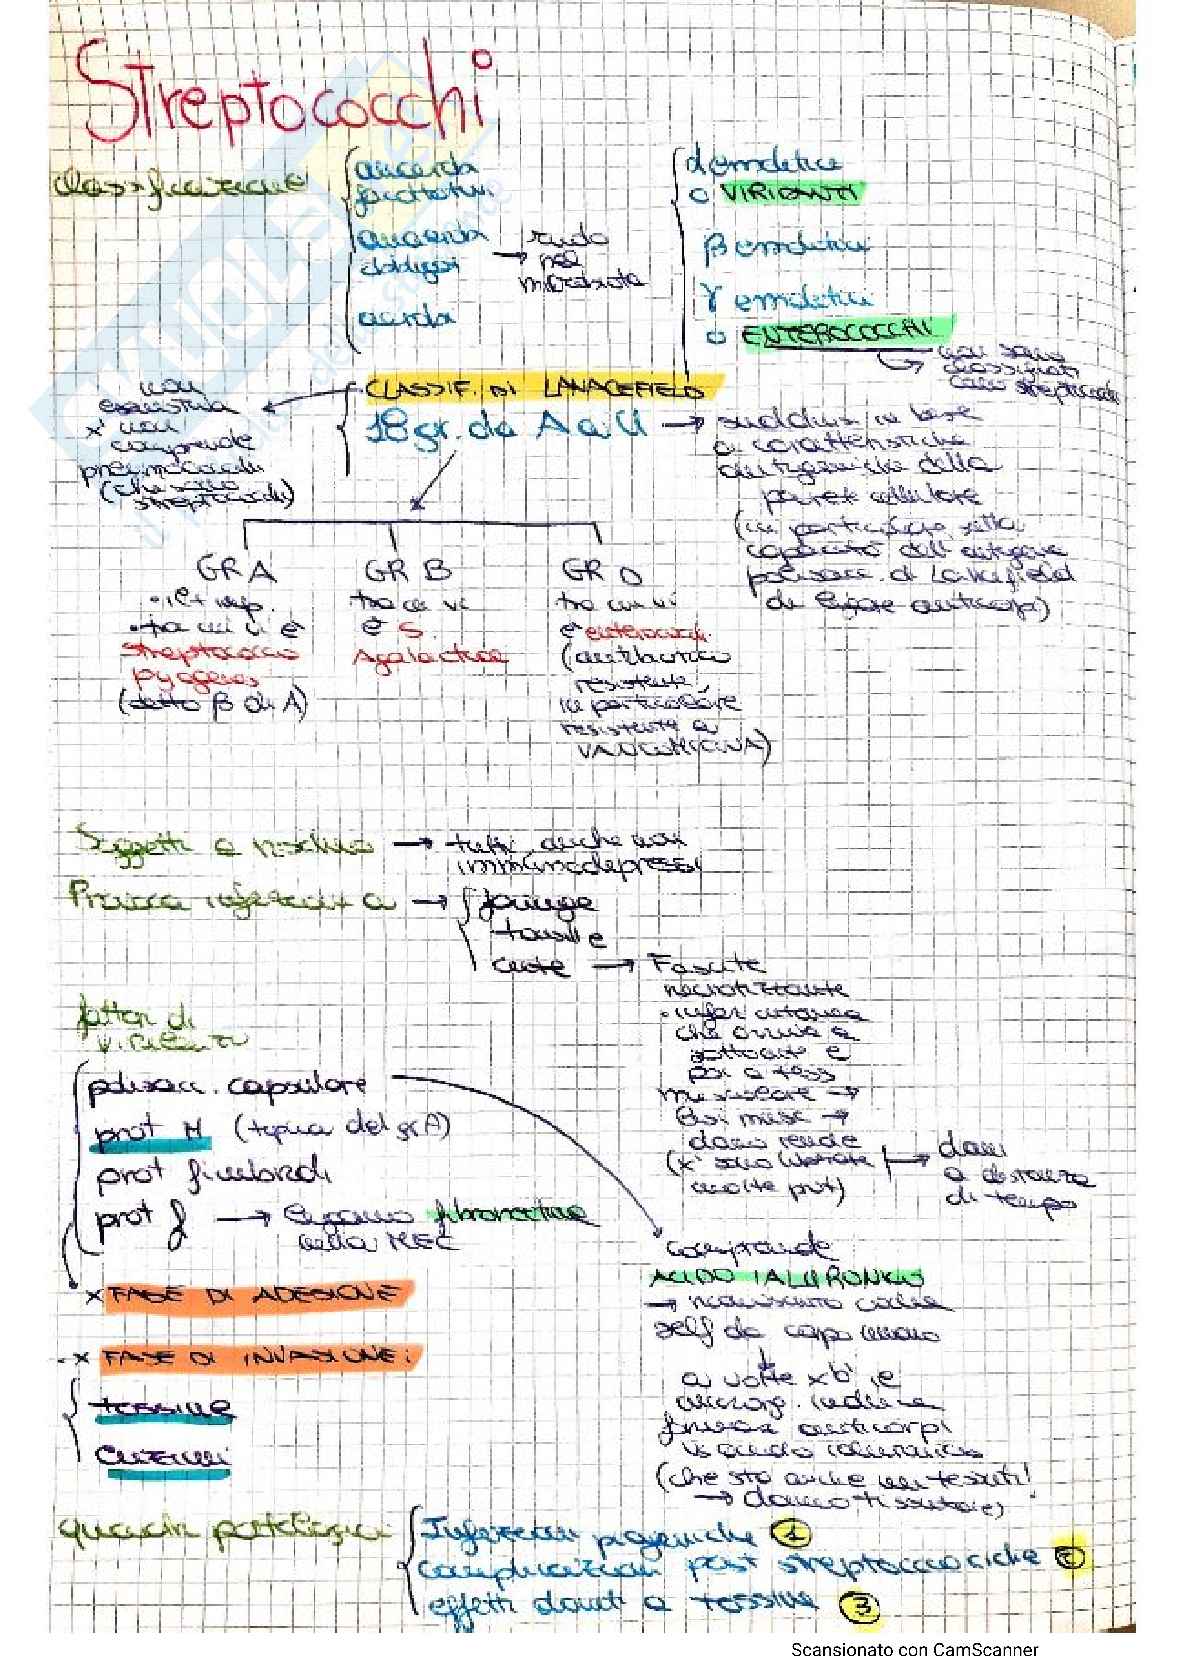 Streptococchi
classificazione
anaerobi
facoltativi
anaerobi
obbligati
→ ruolo
nel
microbiota
aerobi
α emolitici
o VIRIDANTI
β emolitici
γ emolitici
o ENTEROCOCCHI
non sono
classificati
come streptococchi
CLASSIF. DI LANCEFIELD
non
esaustiva
x' non
comprende
pneumococchi
(che sono
streptococchi)
18 gr. da A a U → suddivisi in base
a caratteristiche
antigeniche della
parete cellulare
(in particolare sulla
capacità dell'antigene
polisacc. di Lancefield
di legare anticorpi)
GR A
• il + imp.
• tra cui vi è
streptococco
pyogenes
(detto β di A)
GR B
tra cui vi
è S.
Agalactiae
GR D
tra cui vi
è enterococchi
(antibiotico
resistente,
in particolare
resistente a
VANCOMICINA)
Soggetti a rischio → tutti, anche non
immunodepressi
Provoca infezioni a → faringe
tonsille
cute → Fascite
necrotizzante
• infez cutanea
che arriva a
sottocute e
poi a tess
muscolare →
danno renale
(x' sono liberate
molte prot)
→ danni
a distanza
di tempo
fattori di
virulenza
polisacc. capsulare
prot M (tipica del gr A)
prot fimbriali
prot f → legano fibronectina
nella MEC
comprende
ACIDO IALURONICO
→ riconosciuto come
self da corpo umano
↓
a volte xò il
microrg. induce
anticorpi
vs acido ialuronico
(che sta anche nei tessuti!
→ danno tissutale)
x FASE DI ADESIONE
- x FASE DI INVASIONE:
tossine
enzimi
quadri patologici
Infezioni piogeniche 1
complicazioni post streptococciche 2
effetti dovuti a tossine 3
Scansionato con CamScanner